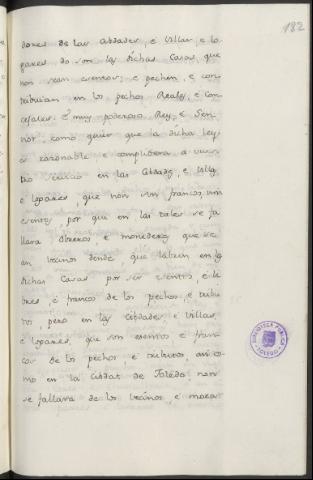 182
dores de las Cibdades, é Villas, é lo
gares do son las dichas Casas, que
non sean esentos; é pechen, é con
tribuian en los pechos Reales, é con
cejales. É muy poderoso Rey, é Sen
nor, como quier que la dicha Ley
es razonable é complidera a vues
tro servicio en las Cibdades, é Villas
é logares, que non son francos, nin
esentos, por que en las tales se fa
llara obreros, é monederos que se
an vecinos dende, que labren en las
dichas Casas por ser esentos, é li
bres, é francos de los pechos é tribu
tos, pero en las Cibdades é Villas,
é logares, que son esentos é fran
cos de los pechos é tributos, ansi co
mo en la Cibdat de Toledo, non
se fallarà de los vecinos, é mora
BIBLIOTECA PUBLICA
TOLEDO